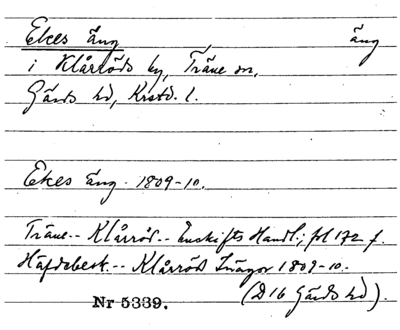 Ekes äng äng
i Klårröds by, Träne sn,
Gärds hd, Krstd. l.
Ekes äng 1809-10.
Träne.- Klårröd.- Enskifts Handl.; fol 172 f.
Häfdebesk.- Klårröds Inägor 1809-10.
Nr 5339. (D16 Gärds hd).